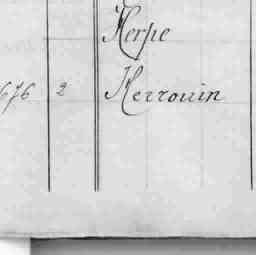 Herpe
676 2 Herrouin